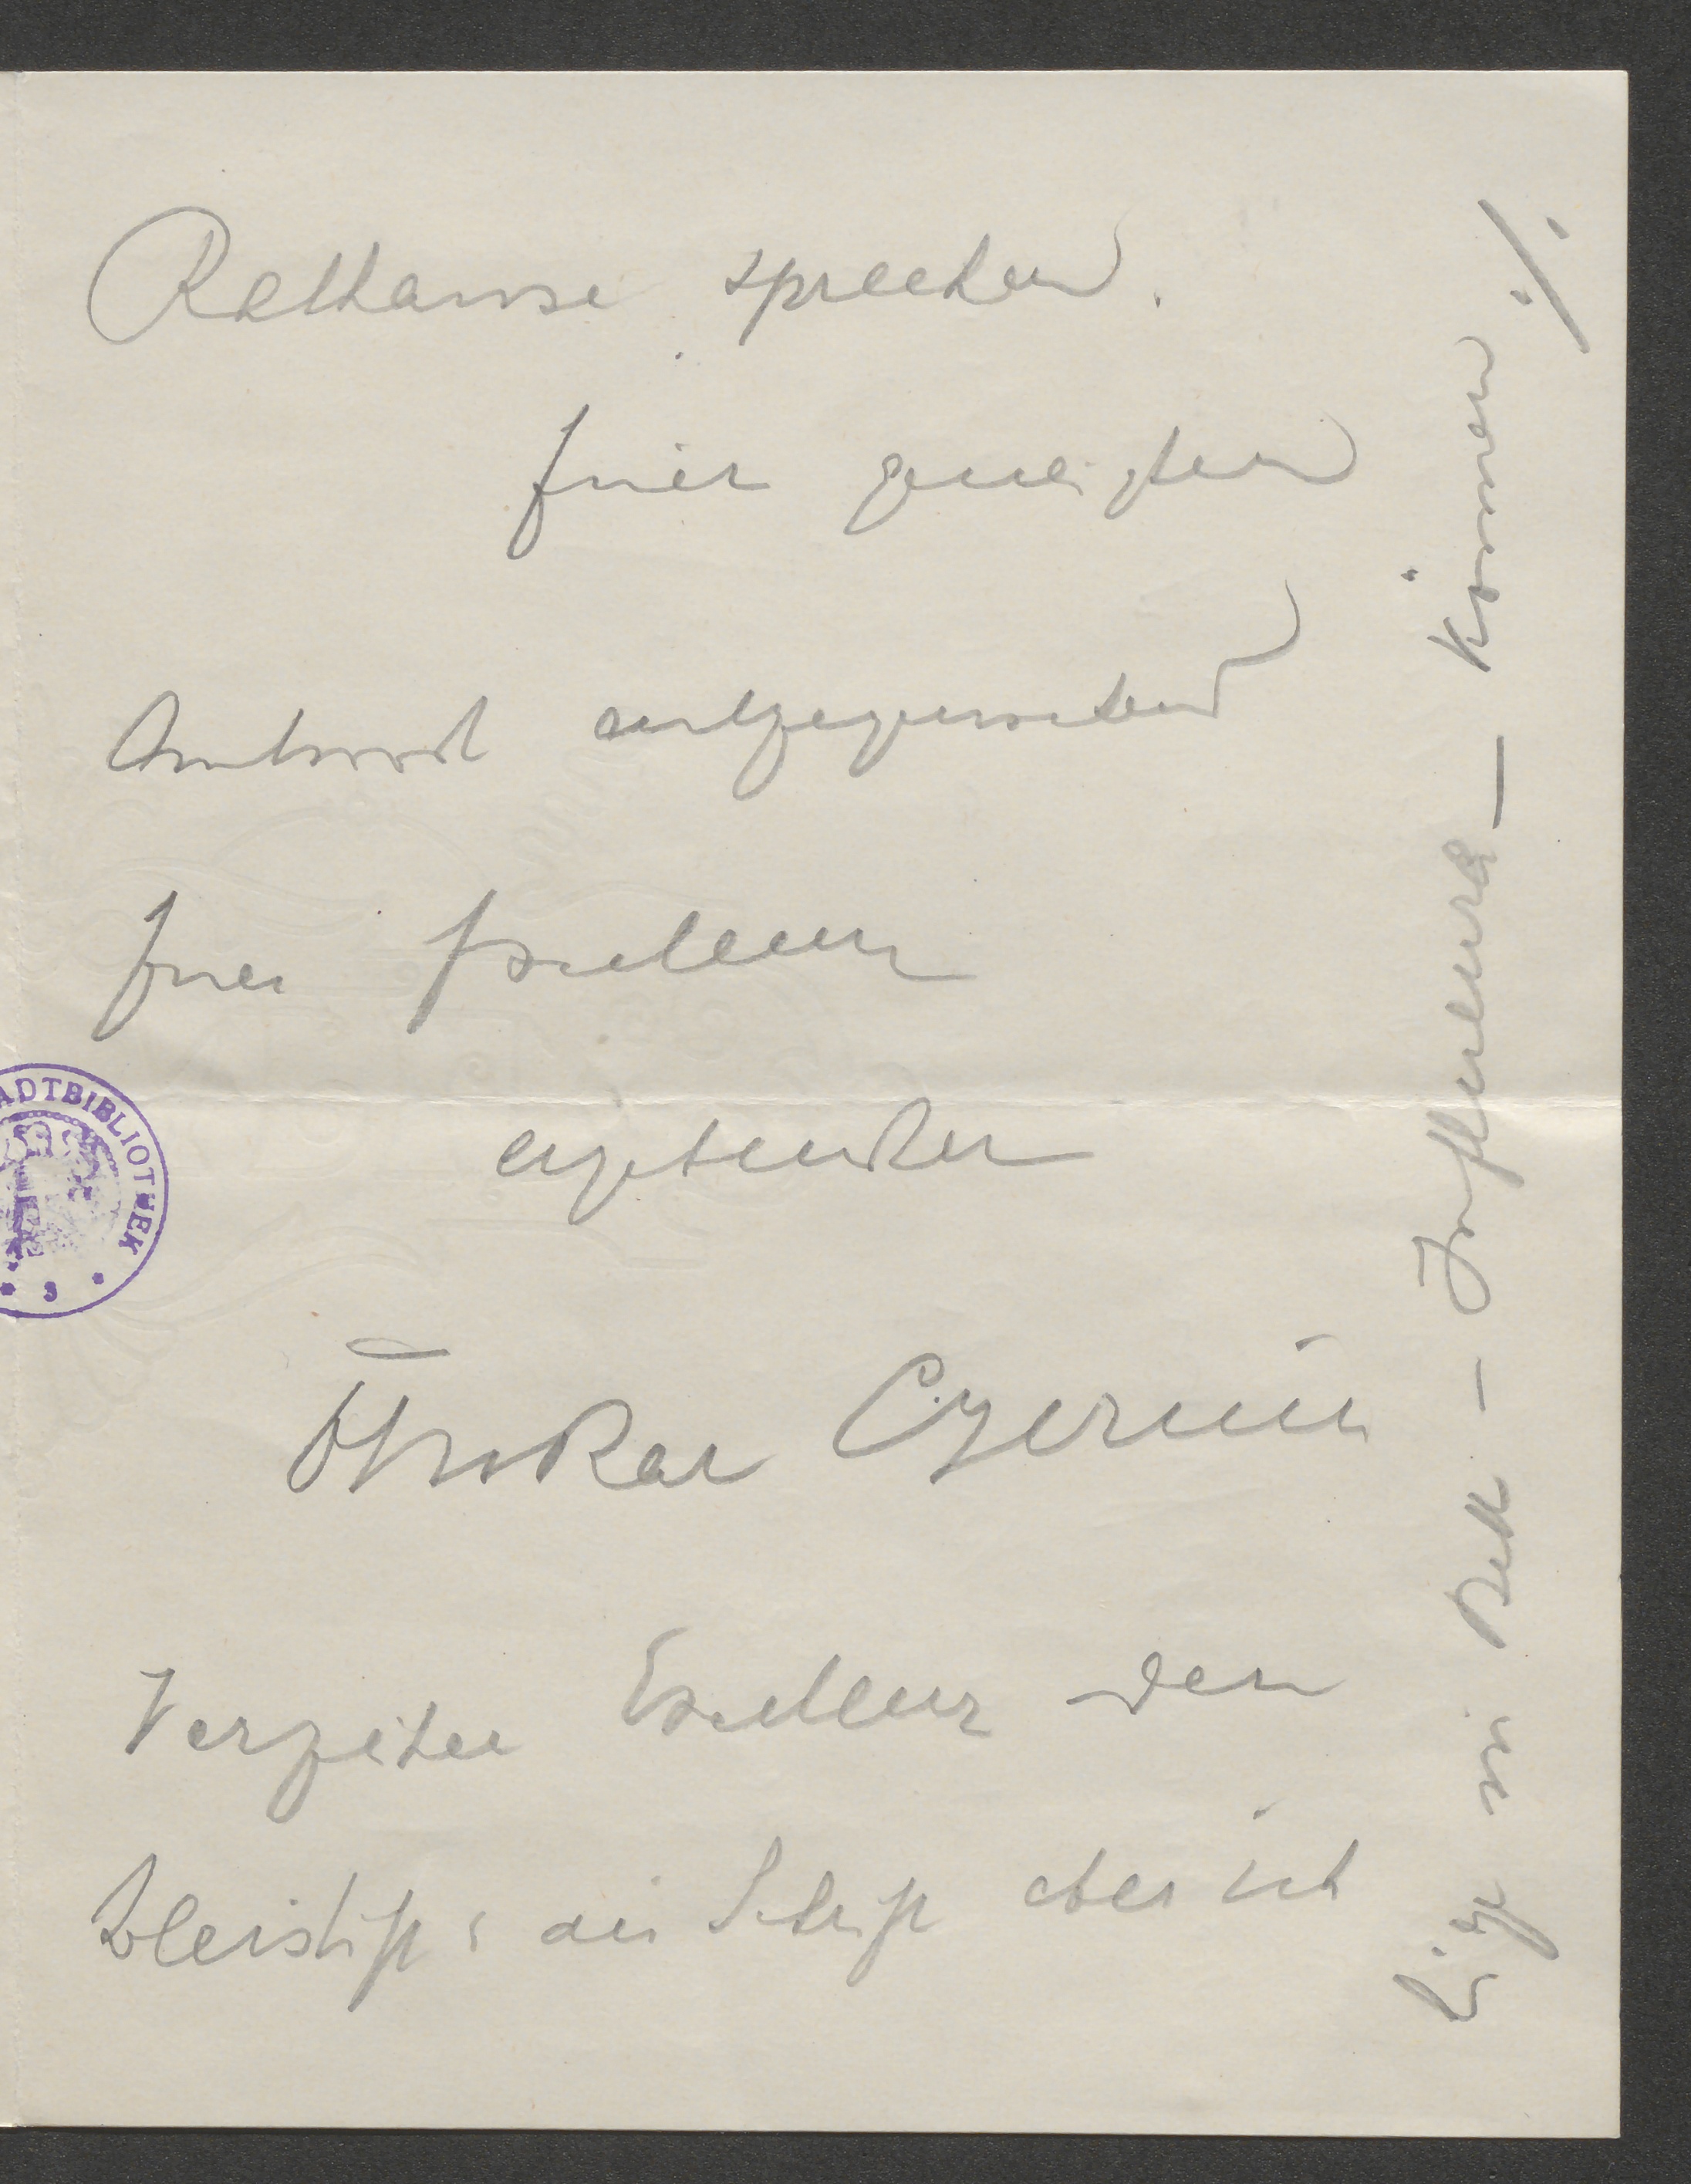 Rathause sprechen.
Einer geneigten
Antwort entgegensehend
Euer Exzellenz
ergebenster
Ottokar Czernin
Verzeihen Exzellenz den
Bleistift & die Schrift aber ich
liege im Bett – Influenza – können
./.
STADTBIBLIOTHEK